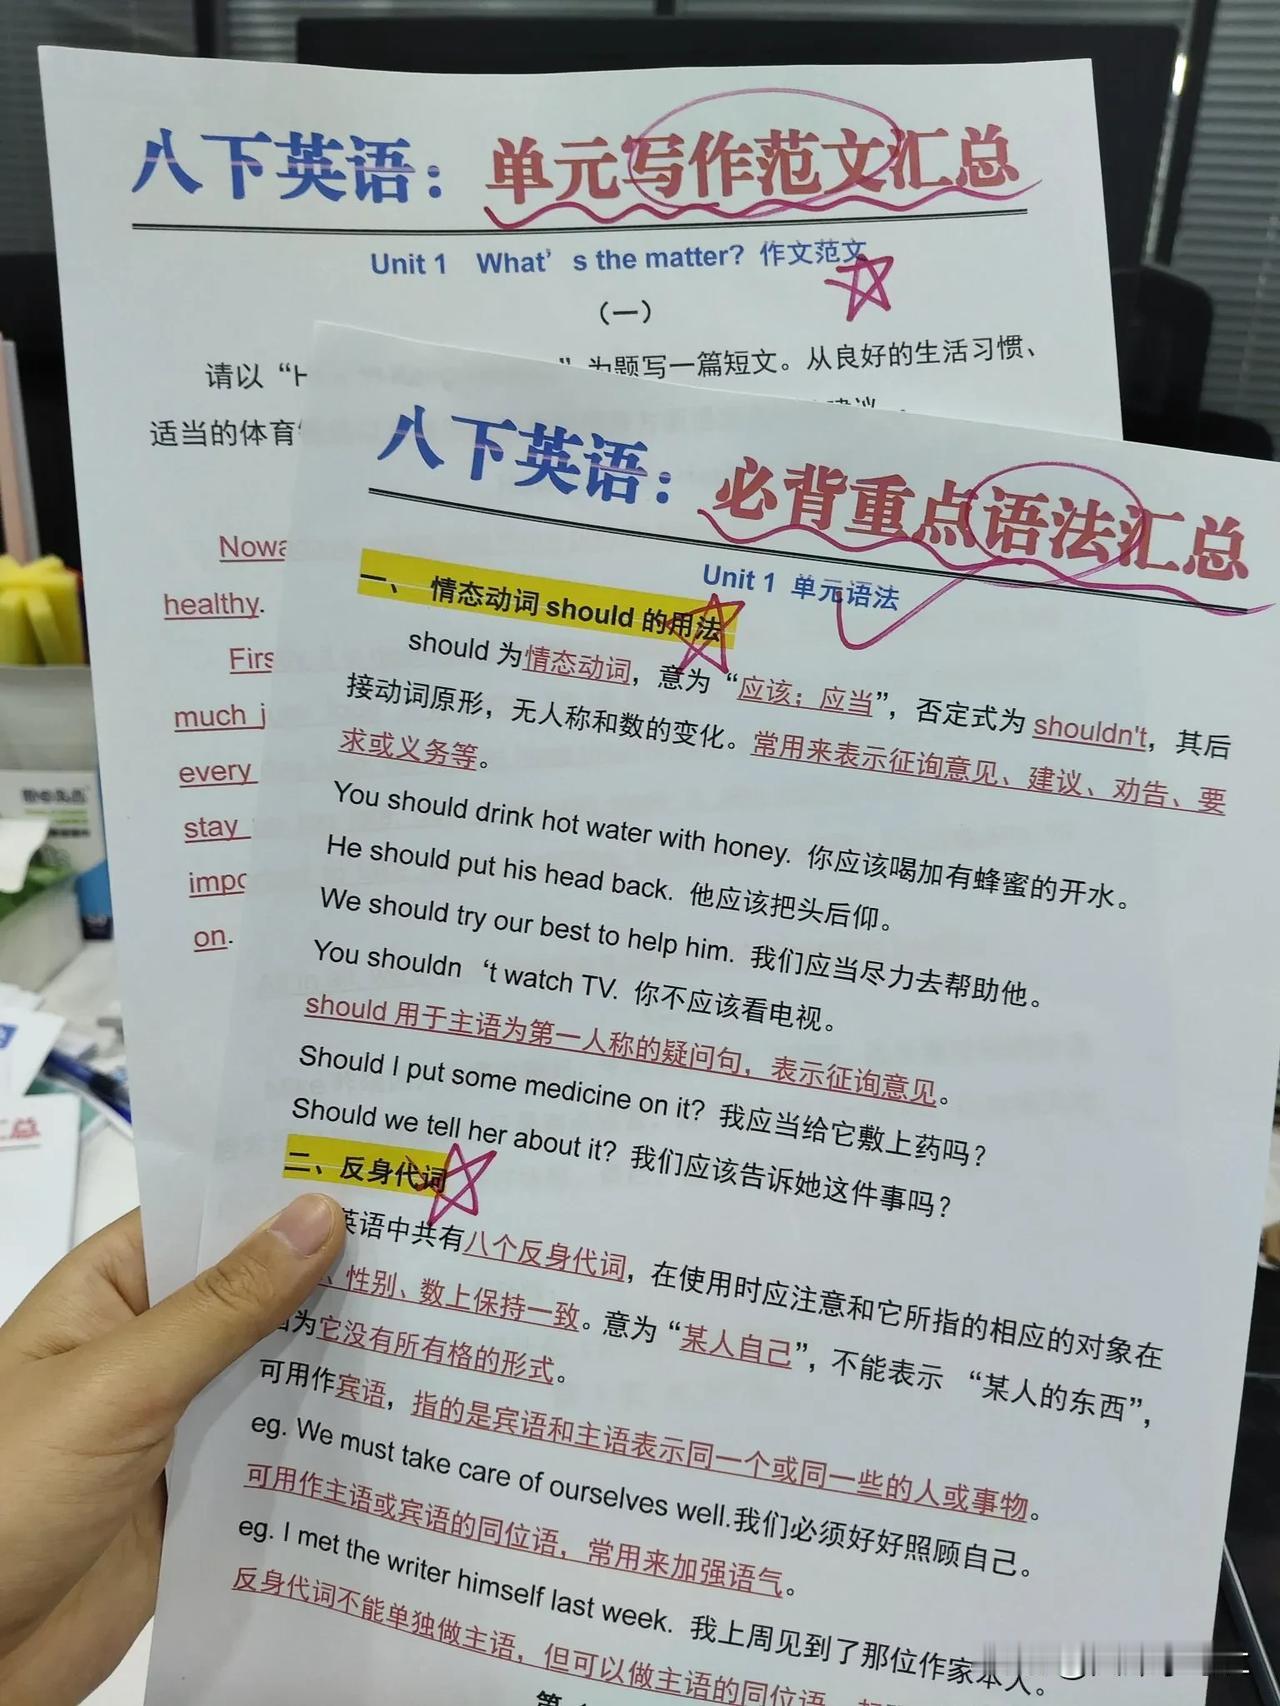 八下英语：单元写作范文汇总
Unit 1 What's the matter? 作文范文
（一）
请以“H ”为题写一篇短文。从良好的生活习惯、
适当的体育
healthy.
much
every
stay
on.
八下英语：必背重点语法汇总
Unit 1 单元语法
一、 情态动词 should 的用法
should 为情态动词，意为“应该；应当”，否定式为 shouldn't，其后
接动词原形，无人称和数的变化。常用来表示征询意见、建议、劝告、要
求或义务等。
You should drink hot water with honey. 你应该喝加有蜂蜜的开水。
He should put his head back. 他应该把头后仰。
We should try our best to help him. 我们应当尽力去帮助他。
You shouldn ‘t watch TV. 你不应该看电视。
should 用于主语为第一人称的疑问句，表示征询意见。
Should I put some medicine on it? 我应当给它敷上药吗？
Should we tell her about it? 我们应该告诉她这件事吗？
二、反身代词
英语中共有八个反身代词，在使用时应注意和它所指的相应的对象在
、性别、数上保持一致。意为“某人自己”，不能表示 “某人的东西”，
为它没有所有格的形式。
可用作宾语，指的是宾语和主语表示同一个或同一些的人或事物。
eg. We must take care of ourselves well.我们必须好好照顾自己。
可用作主语或宾语的同位语，常用来加强语气。
eg. I met the writer himself last week. 我上周见到了那位作家本人。
反身代词不能单独做主语，但可以做主语的同位语，
第
汇总